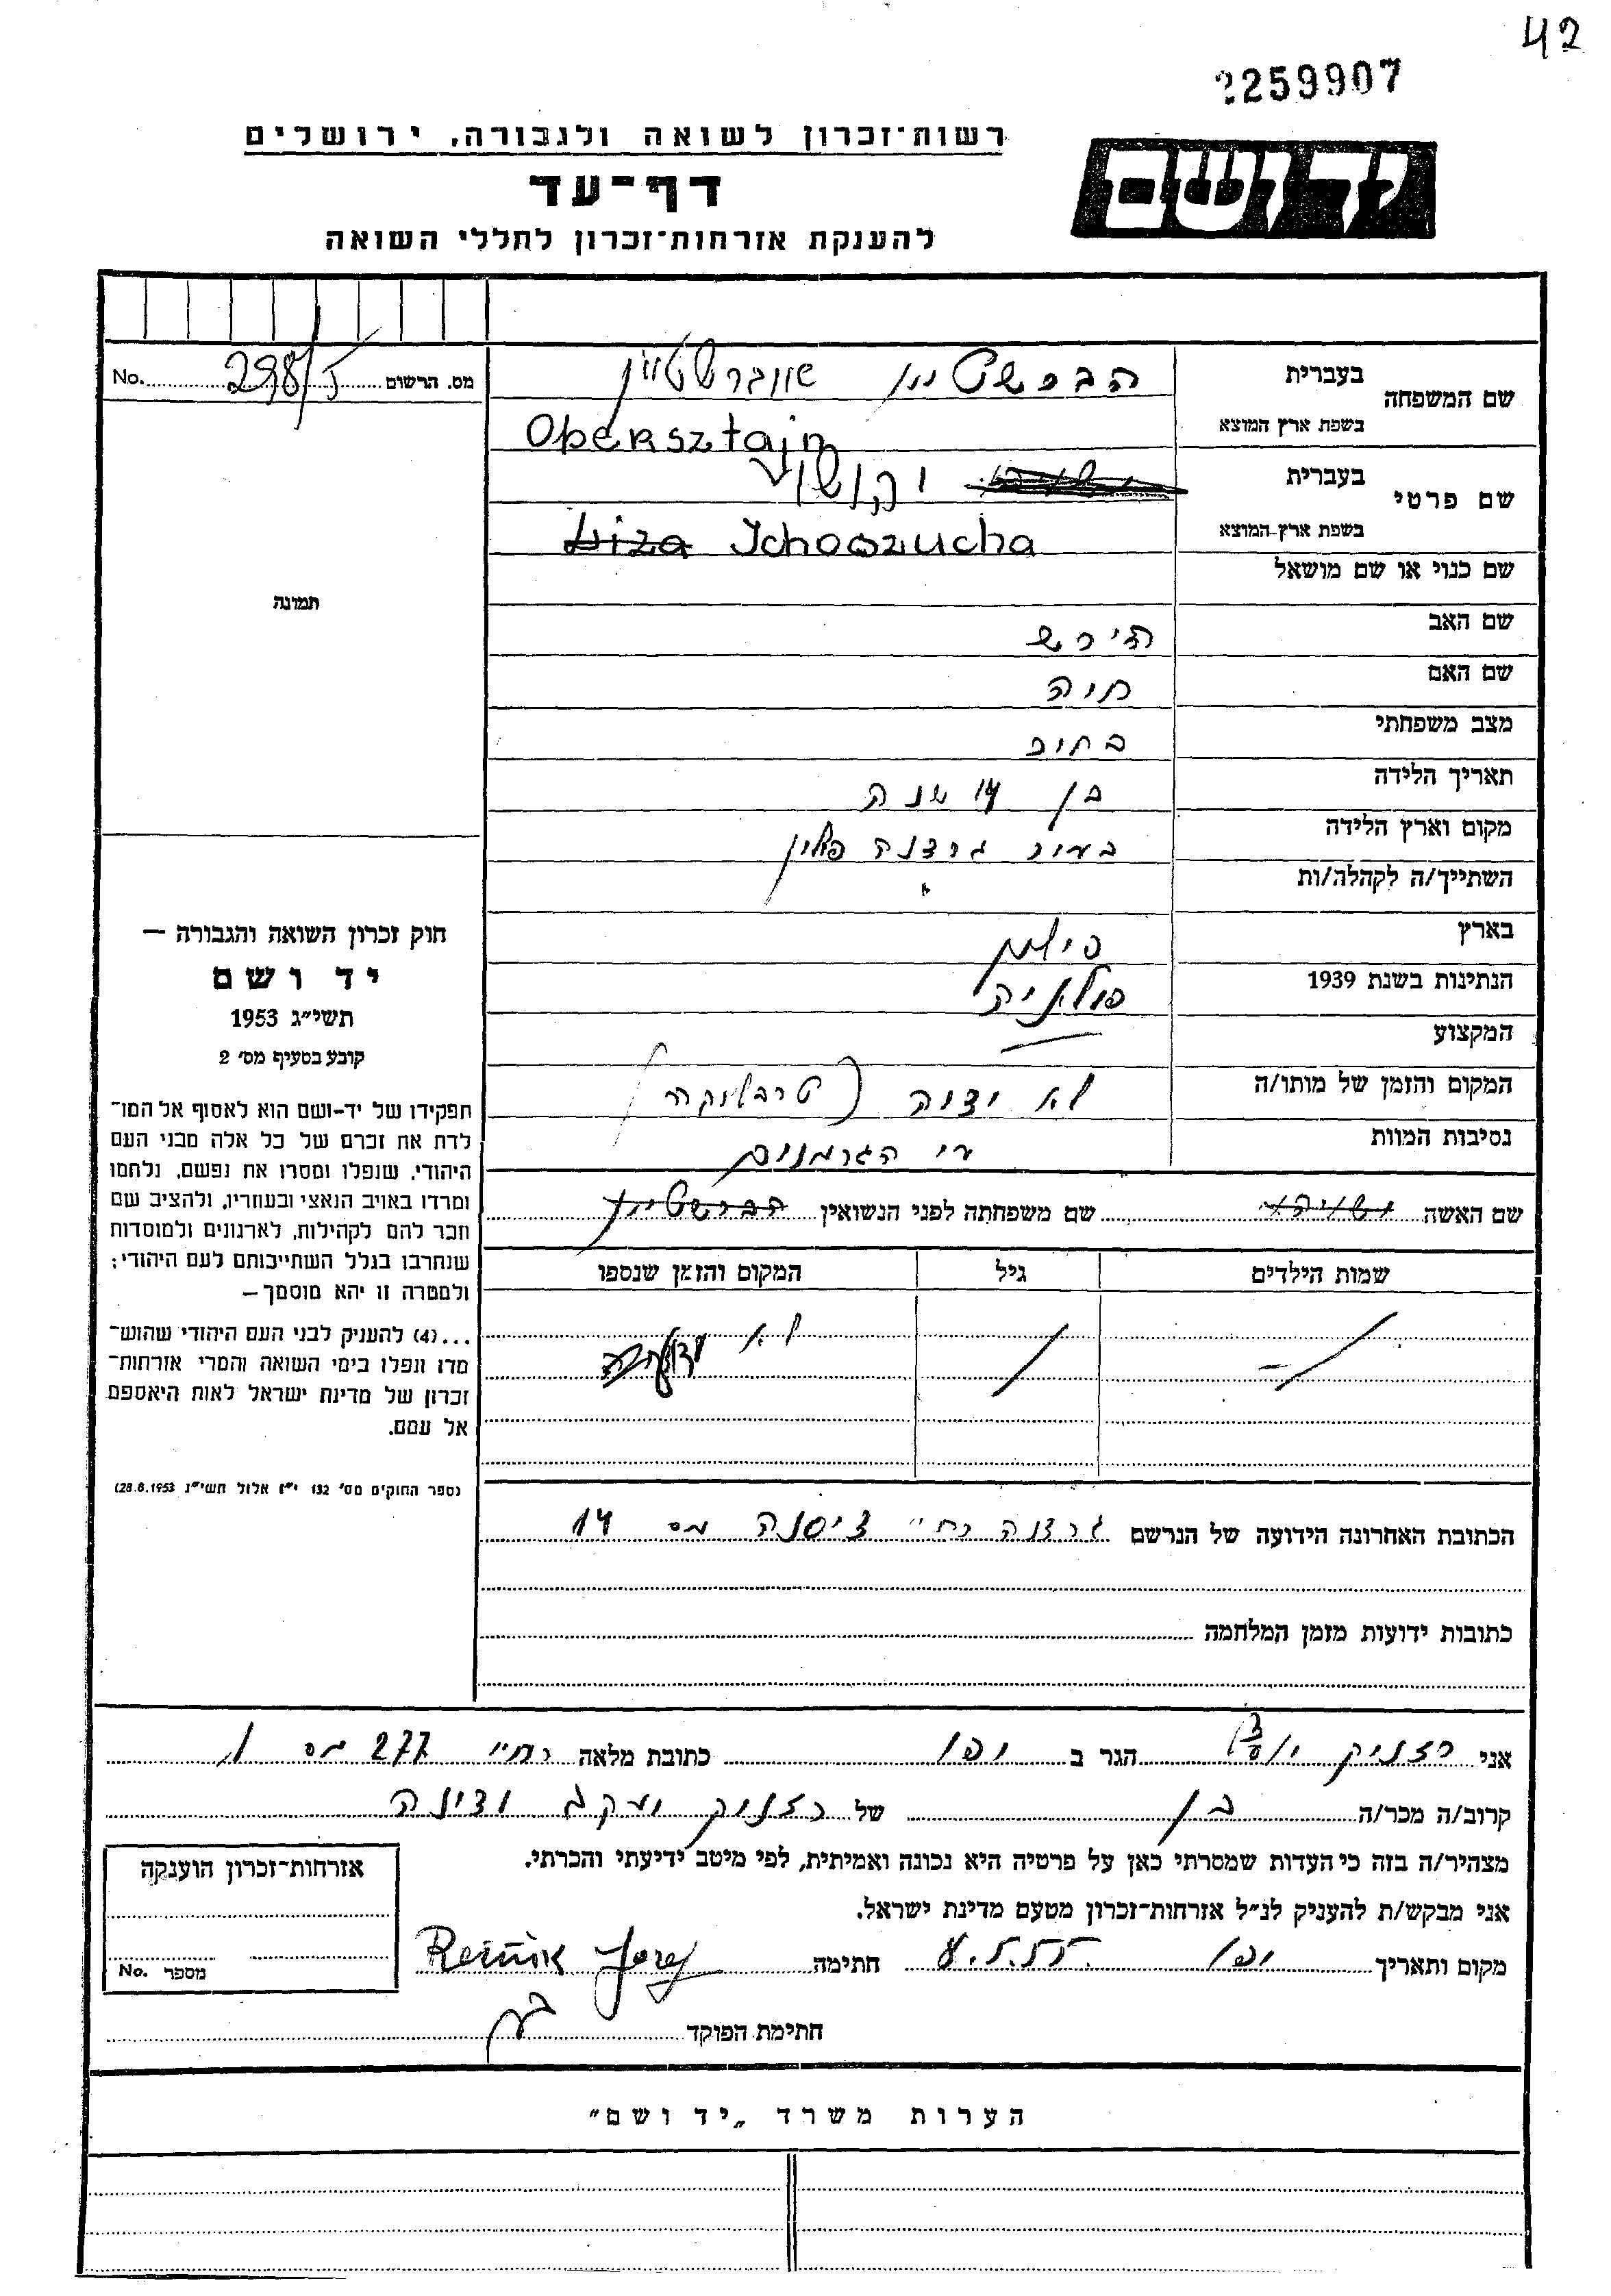 42
2259907
רשות־זכרון לשואה ולגבורה, ירושלים
יד ושם
דף־עד
להענקת אזרחות־זכרון לחללי השואה
שם המשפחה בעברית הברשטיין אוברשטיין
בשפת ארץ המוצא Obersztajn
שם פרטי בעברית יהושוע
בשפת ארץ המוצא Liza Jchoszucha
שם כנוי או שם מושאל
שם האב הירש
שם האם חיה
מצב משפחתי בחור
תאריך הלידה בן 14 שנה
מקום וארץ הלידה בעיר גרצנה פולין
השתייך/ה לקהלה/ות
בארץ פולין
הנתינות בשנת 1939 פולניה
המקצוע
המקום והזמן של מותו/ה לא ידוע (טרבלינקה)
נסיבות המוות ע״י הגרמנים
שם האשה שם משפחתה לפני הנשואין הברשטיין
שמות הילדים גיל המקום והזמן שנספו
לא
הכתובת האחרונה הידועה של הנרשם גרצנה רח״ צ׳יסנה מס 14
כתובות ידועות מזמן המלחמה
No. 298/5 מס. הרשום
תמונה
חוק זכרון השואה והגבורה —
יד ושם
תשי״ג 1953
קובע בסעיף מס׳ 2
תפקידו של יד-ושם הוא לאסוף אל המו־
לדת את זכרם של כל אלה מבני העם
היהודי, שנפלו ומסרו את נפשם, נלחמו
ומרדו באויב הנאצי ובעוזריו, ולהציב שם
וזכר להם לקהילות, לארגונים ולמוסדות
שנחרבו בגלל השתייכותם לעם היהודי;
ולמטרה זו יהא מוסמך —
...(4) להעניק לבני העם היהודי שהוש־
מדו ונפלו בימי השואה והמרי אזרחות־
זכרון של מדינת ישראל לאות היאספם
אל עמם.
(ספר החוקים מס׳ 132 י״ז אלול תשי״ג 28.8.1953)
אני רזניק יוסף הגר ב יפו כתובת מלאה רח״ 277 מס 1
קרוב/ה מכר/ה בן של רזניק יעקב ודינה
מצהיר/ה בזה כי העדות שמסרתי כאן על פרטיה היא נכונה ואמיתית, לפי מיטב ידיעתי והכרתי.
אני מבקש/ת להעניק לנ״ל אזרחות־זכרון מטעם מדינת ישראל.
מקום ותאריך יפו חתימה Reznik Josef
חתימת הפוקד
אזרחות־זכרון הוענקה
No. מספר
הערות משרד „יד ושם״